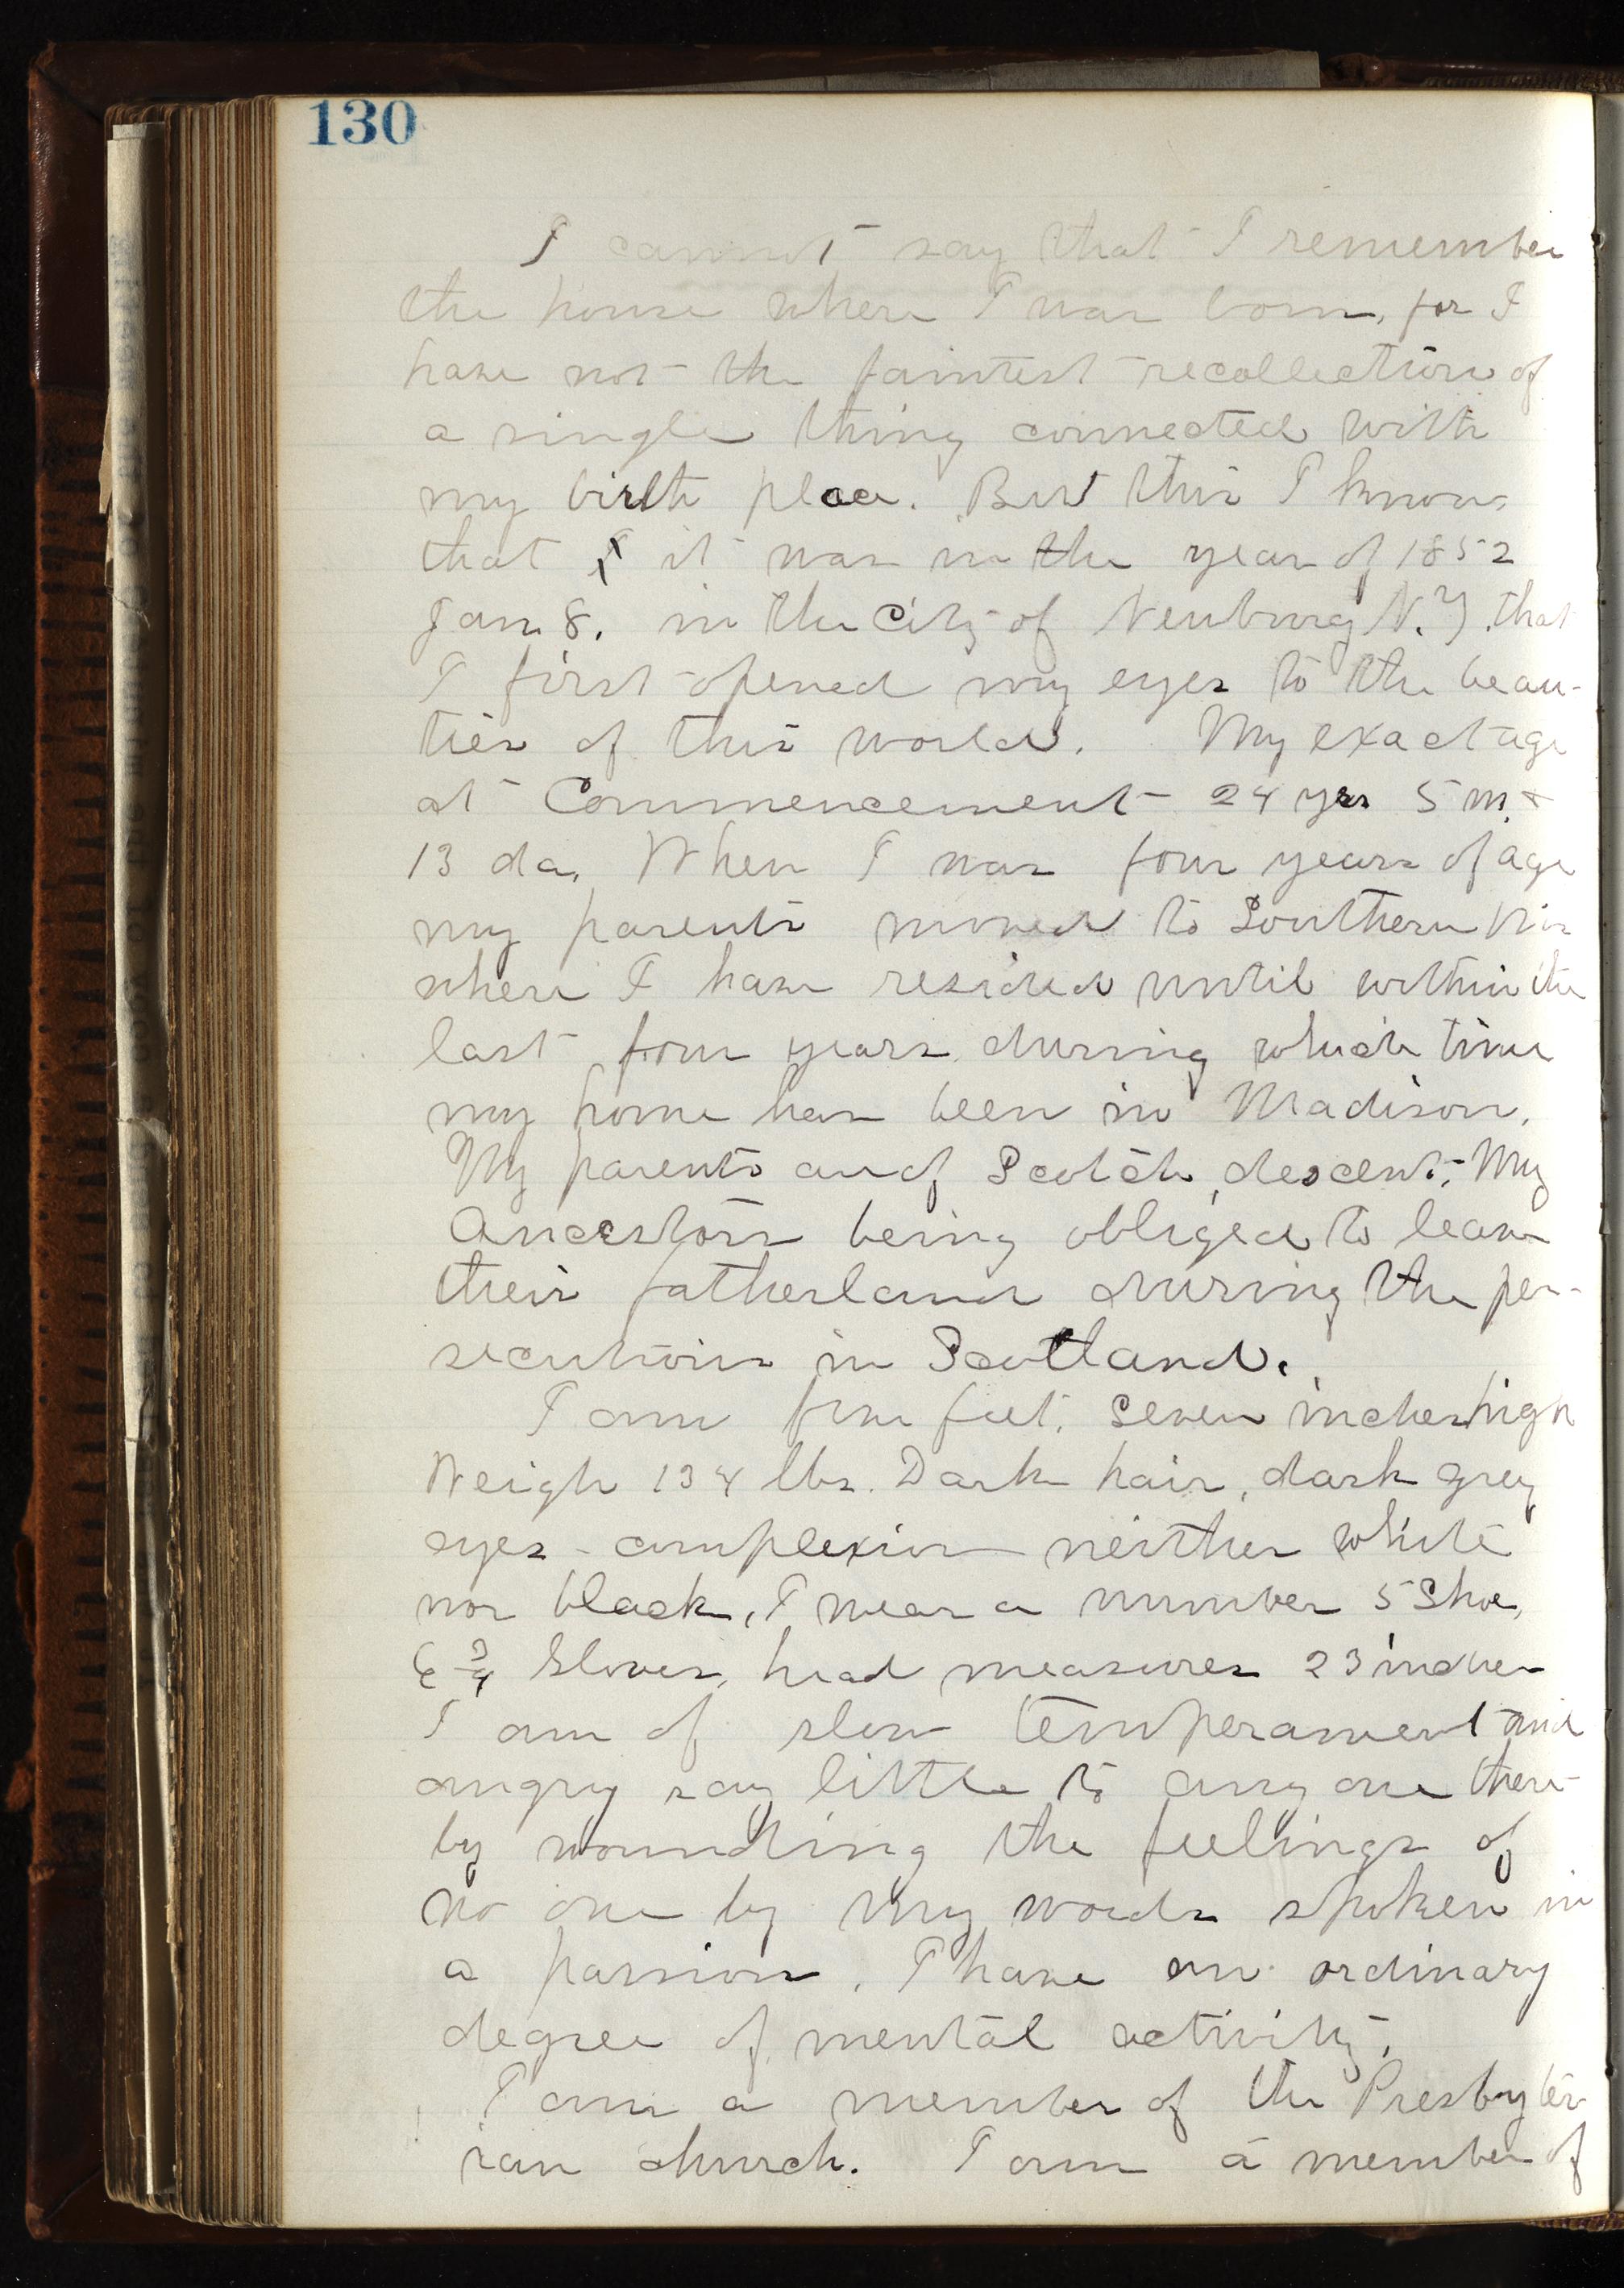 130
I cannot say that I remember
the house where I was born, for I
have not the faintest recollection of
a single thing connected with
my birth place. But this I know,
that it was in the year of 1852
Jan. 8. in the City of Newburg N.Y. that
I first opened my eyes to the beau-
ties of this world. My exact age
at Commencement 24 yrs 5 m. &
13 da. When I was four years of age
my parents moved to Southern Wis
where I have resided until within the
last four years during which time
my home has been in Madison.
My parents are of Scotch descent, My
Ancestors being obliged to leave
their fatherland during the per-
secutions in Scotland.
I am five feet, seven inches high
Weigh 134 lbs. Dark hair, dark grey
eyes - complexion neither white
nor black, I wear a number 5 Shoe,
6 3/4 Gloves, head measures 23 inches
I am of slow temperament and
angry say little to any one there-
by wounding the feelings of
no one by my words spoken in
a passion. I have an ordinary
degree of mental activity.
I am a member of the Presbyter-
ian church. I am a member of